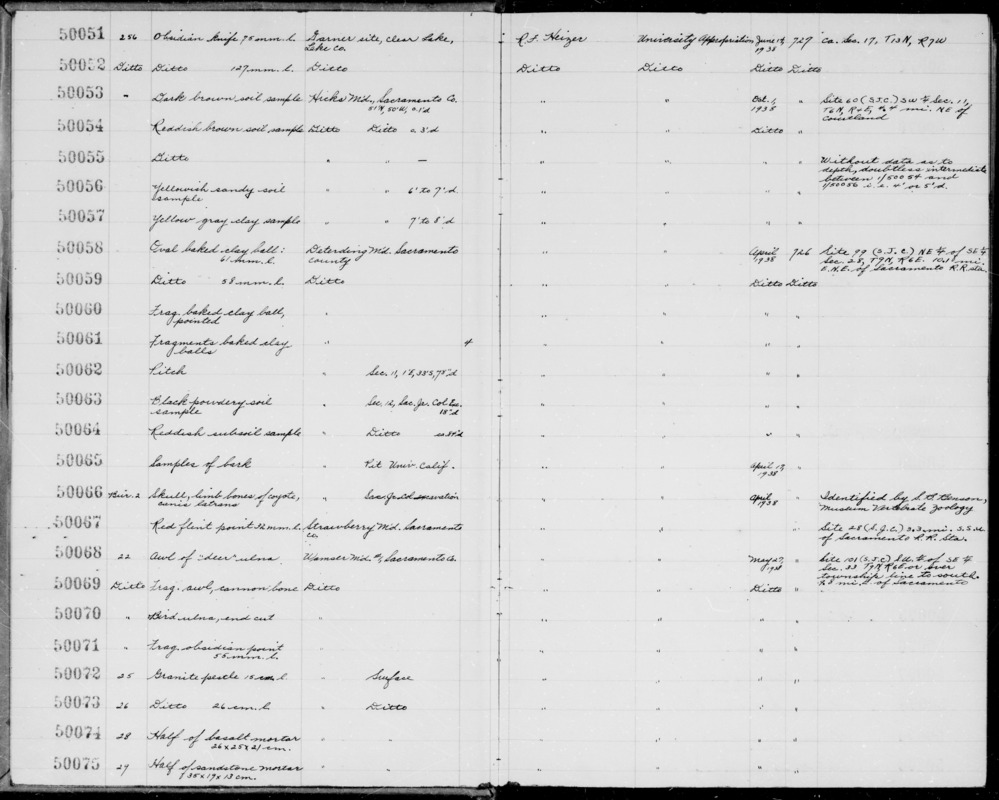 50051 256 Obsidian knife 75 mm. l. Garner site, Clear Lake, R. F. Heizer University Appropriation June 14, 727 Ca. Sec. 17, T13N, R7W
Lake Co. 1938
50052 Ditto Ditto 127 mm. l. Ditto Ditto Ditto Ditto Ditto
50053 - Dark brown soil sample Hicks Md., Sacramento Co. " " Oct. 1, - Site 60 (S.J.C.) SW ¼ Sec. 11,
51N, 50W, 0.1'd 1938 T6N, R4E, mi. NE of
Courtland
50054 Reddish brown soil sample Ditto Ditto 2.3'd " " Ditto "
50055 Ditto " " — " " " " Without data as to
depth, doubtless intermediate
between 1/50054 and
1/50056 i.e. 4' or 5'd.
50056 Yellowish sandy soil " " 6' to 7'd " " " "
sample
50057 Yellow gray clay sample " " 7' to 8'd " " " "
50058 Oval baked clay ball: Deterding Md. Sacramento " " April 726 Site 99 (S.J.C.) NE ¼ of SE ¼
61 mm. l. county 1938 Sec. 28, T9N, R6E. mi.
E.N.E. of Sacramento R.R. sta.
50059 Ditto 58 mm. l. Ditto " " Ditto Ditto
50060 Frag. baked clay ball, " " " "
pointed
50061 Fragments baked clay " 4 " " " "
balls
50062 Pitch " Sec. 11, 18, 35S, 78"d " " " "
50063 Black powdery soil " Sec. 12, Sac. Jr. Col. Exc. " " " "
sample 18"d
50064 Reddish subsoil sample " Ditto 84"d " " " "
50065 Samples of bark " Pit Univ. Calif. " " April 17, "
1938
50066 Bur. 2 Skull, limb bones of coyote, " Sac. Jr. Col. excavation " " April, " Identified by S. B. Benson,
canis latrans 1938 Museum Vertebrate Zoology
50067 Red flint point 32 mm. l. Strawberry Md. Sacramento " " " " Site 28 (S.J.C.) 3.3 mi. S.S.W.
Co. of Sacramento R.R. Sta.
50068 22 Awl of "deer" ulna Wamser Md. #1, Sacramento Co. " " May 27, " Site 101 (S.J.C.) SW ¼ of SE ¼
1938 Sec. 33 T9N R6E or over
township line to south.
mi. E. of Sacramento
50069 Ditto Frag. awl, cannon bone Ditto " " Ditto " "
50070 " Bird ulna, end cut " " " "
50071 " Frag. obsidian point " " " " "
55 mm. l.
50072 25 Granite pestle 15 cm. l " Surface " " " "
50073 26 Ditto 26 cm. l. " Ditto " " " "
50074 28 Half of basalt mortar " " " " " "
26 x 25 x 21 cm.
50075 29 Half of sandstone mortar " " " " " "
35 x 19 x 13 cm.